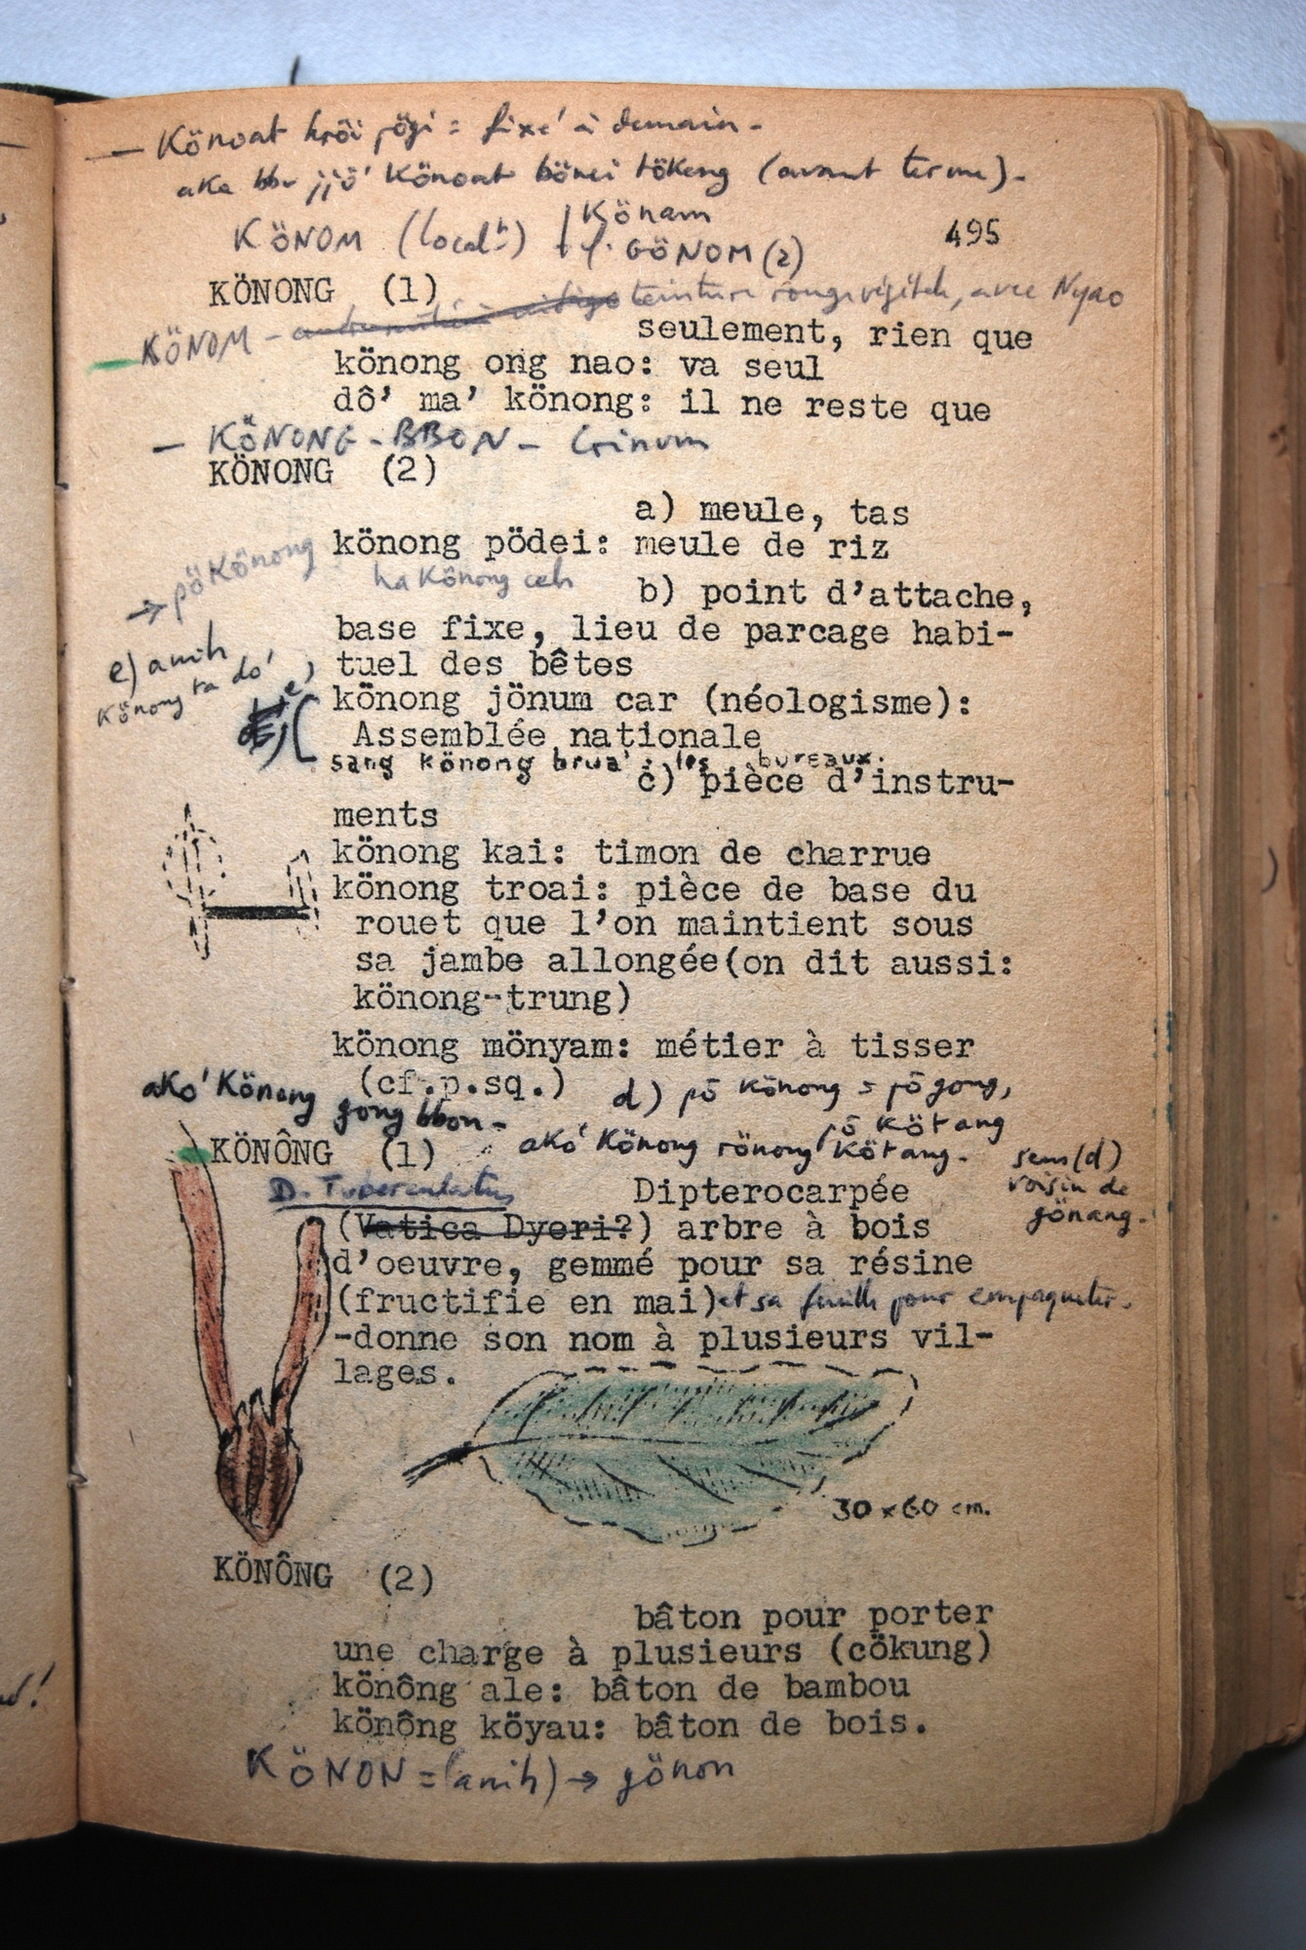 — Könoat krôi pögi = fixé à demain -
jjö' Könoat tökeng (avant terme) -
KÖNOM (local^t) Könam
GÖNOM (2)
495
KÖNONG (1)
KÖNOM - teinture rouge végétale, avec Nyao
seulement, rien que
könong ong nao: va seul
dô' ma' könong: il ne reste que
— KÖNONG - BBON - Crinum
KÖNONG (2)
a) meule, tas
könong pödei: meule de riz
→ pökönong
ha Könong ceh
b) point d'attache,
base fixe, lieu de parcage habi-
tuel des bêtes
e) anih
Könong ta do'
könong jönum car (néologisme):
Assemblée nationale
sang könong brua' : les bureaux.
c) pièce d'instru-
ments
könong kai: timon de charrue
könong troai: pièce de base du
rouet que l'on maintient sous
sa jambe allongée(on dit aussi:
könong-trung)
könong mönyam: métier à tisser
(cf.p.sq.)
d) pö könong = pö gong,
pö kötang
ako' Könong gong bbon -
ako' Könong rönong kötang.
sens (d)
voisin de
gönang.
KÖNÔNG (1)
D. Tuberculatus
Dipterocarpée
(Vatica Dyeri?) arbre à bois
d'oeuvre, gemmé pour sa résine
(fructifie en mai) et sa feuille pour empaqueter.
-donne son nom à plusieurs vil-
lages.
30 x 60 cm.
KÖNÔNG (2)
bâton pour porter
une charge à plusieurs (cökung)
könông ale: bâton de bambou
könông köyau: bâton de bois.
KÖNON = (anih) → gönon